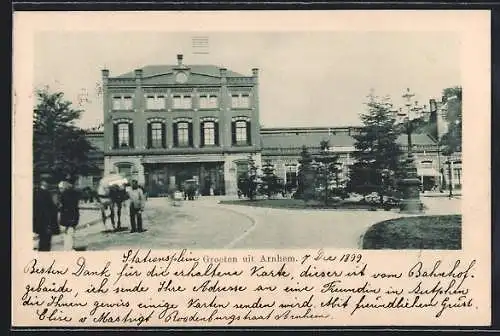 Stationsplein Groeten uit Arnhem. 7 Dec 1899
Besten Dank für die erhaltene Karte, dieser ist vom Bahnhof,
gebäude, ich sende Ihre Adresse an eine Freundin in Zutphen
die Ihnen gewiss einige Karten senden wird. Mit freundlichem Grüst.
Elise v Mastrigt Roodenburgstraat Arnhem.